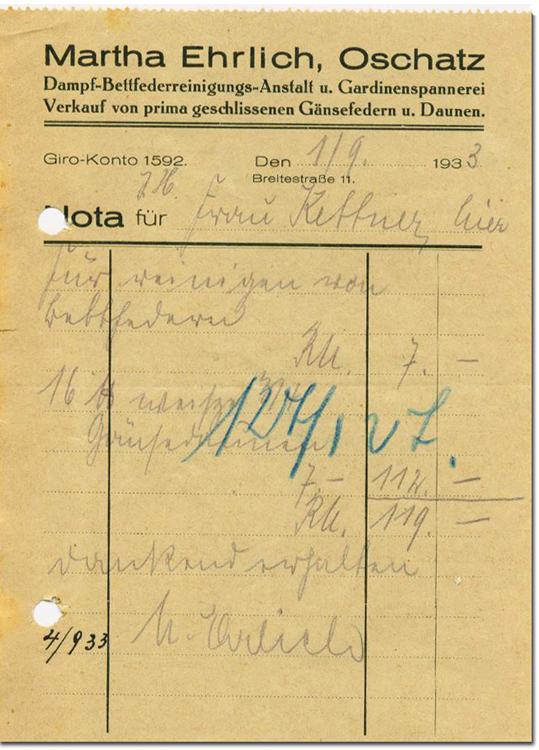 Martha Ehrlich, Oschatz
Dampf-Bettfederreinigungs-Anstalt u. Gardinenspannerei
Verkauf von prima geschlissenen Gänsefedern u. Daunen.
Giro-Konto 1592. Den 1/9. 1933
Breitestraße 11.
Nota für Frau Kettner, hier
für reinigen von
Bettfedern
RM. 7. —
16 ℔ weiße
Gänsedaunen
7.— 112. —
RM. 119. —
dankend erhalten
M. Ehrlich
4/9 33